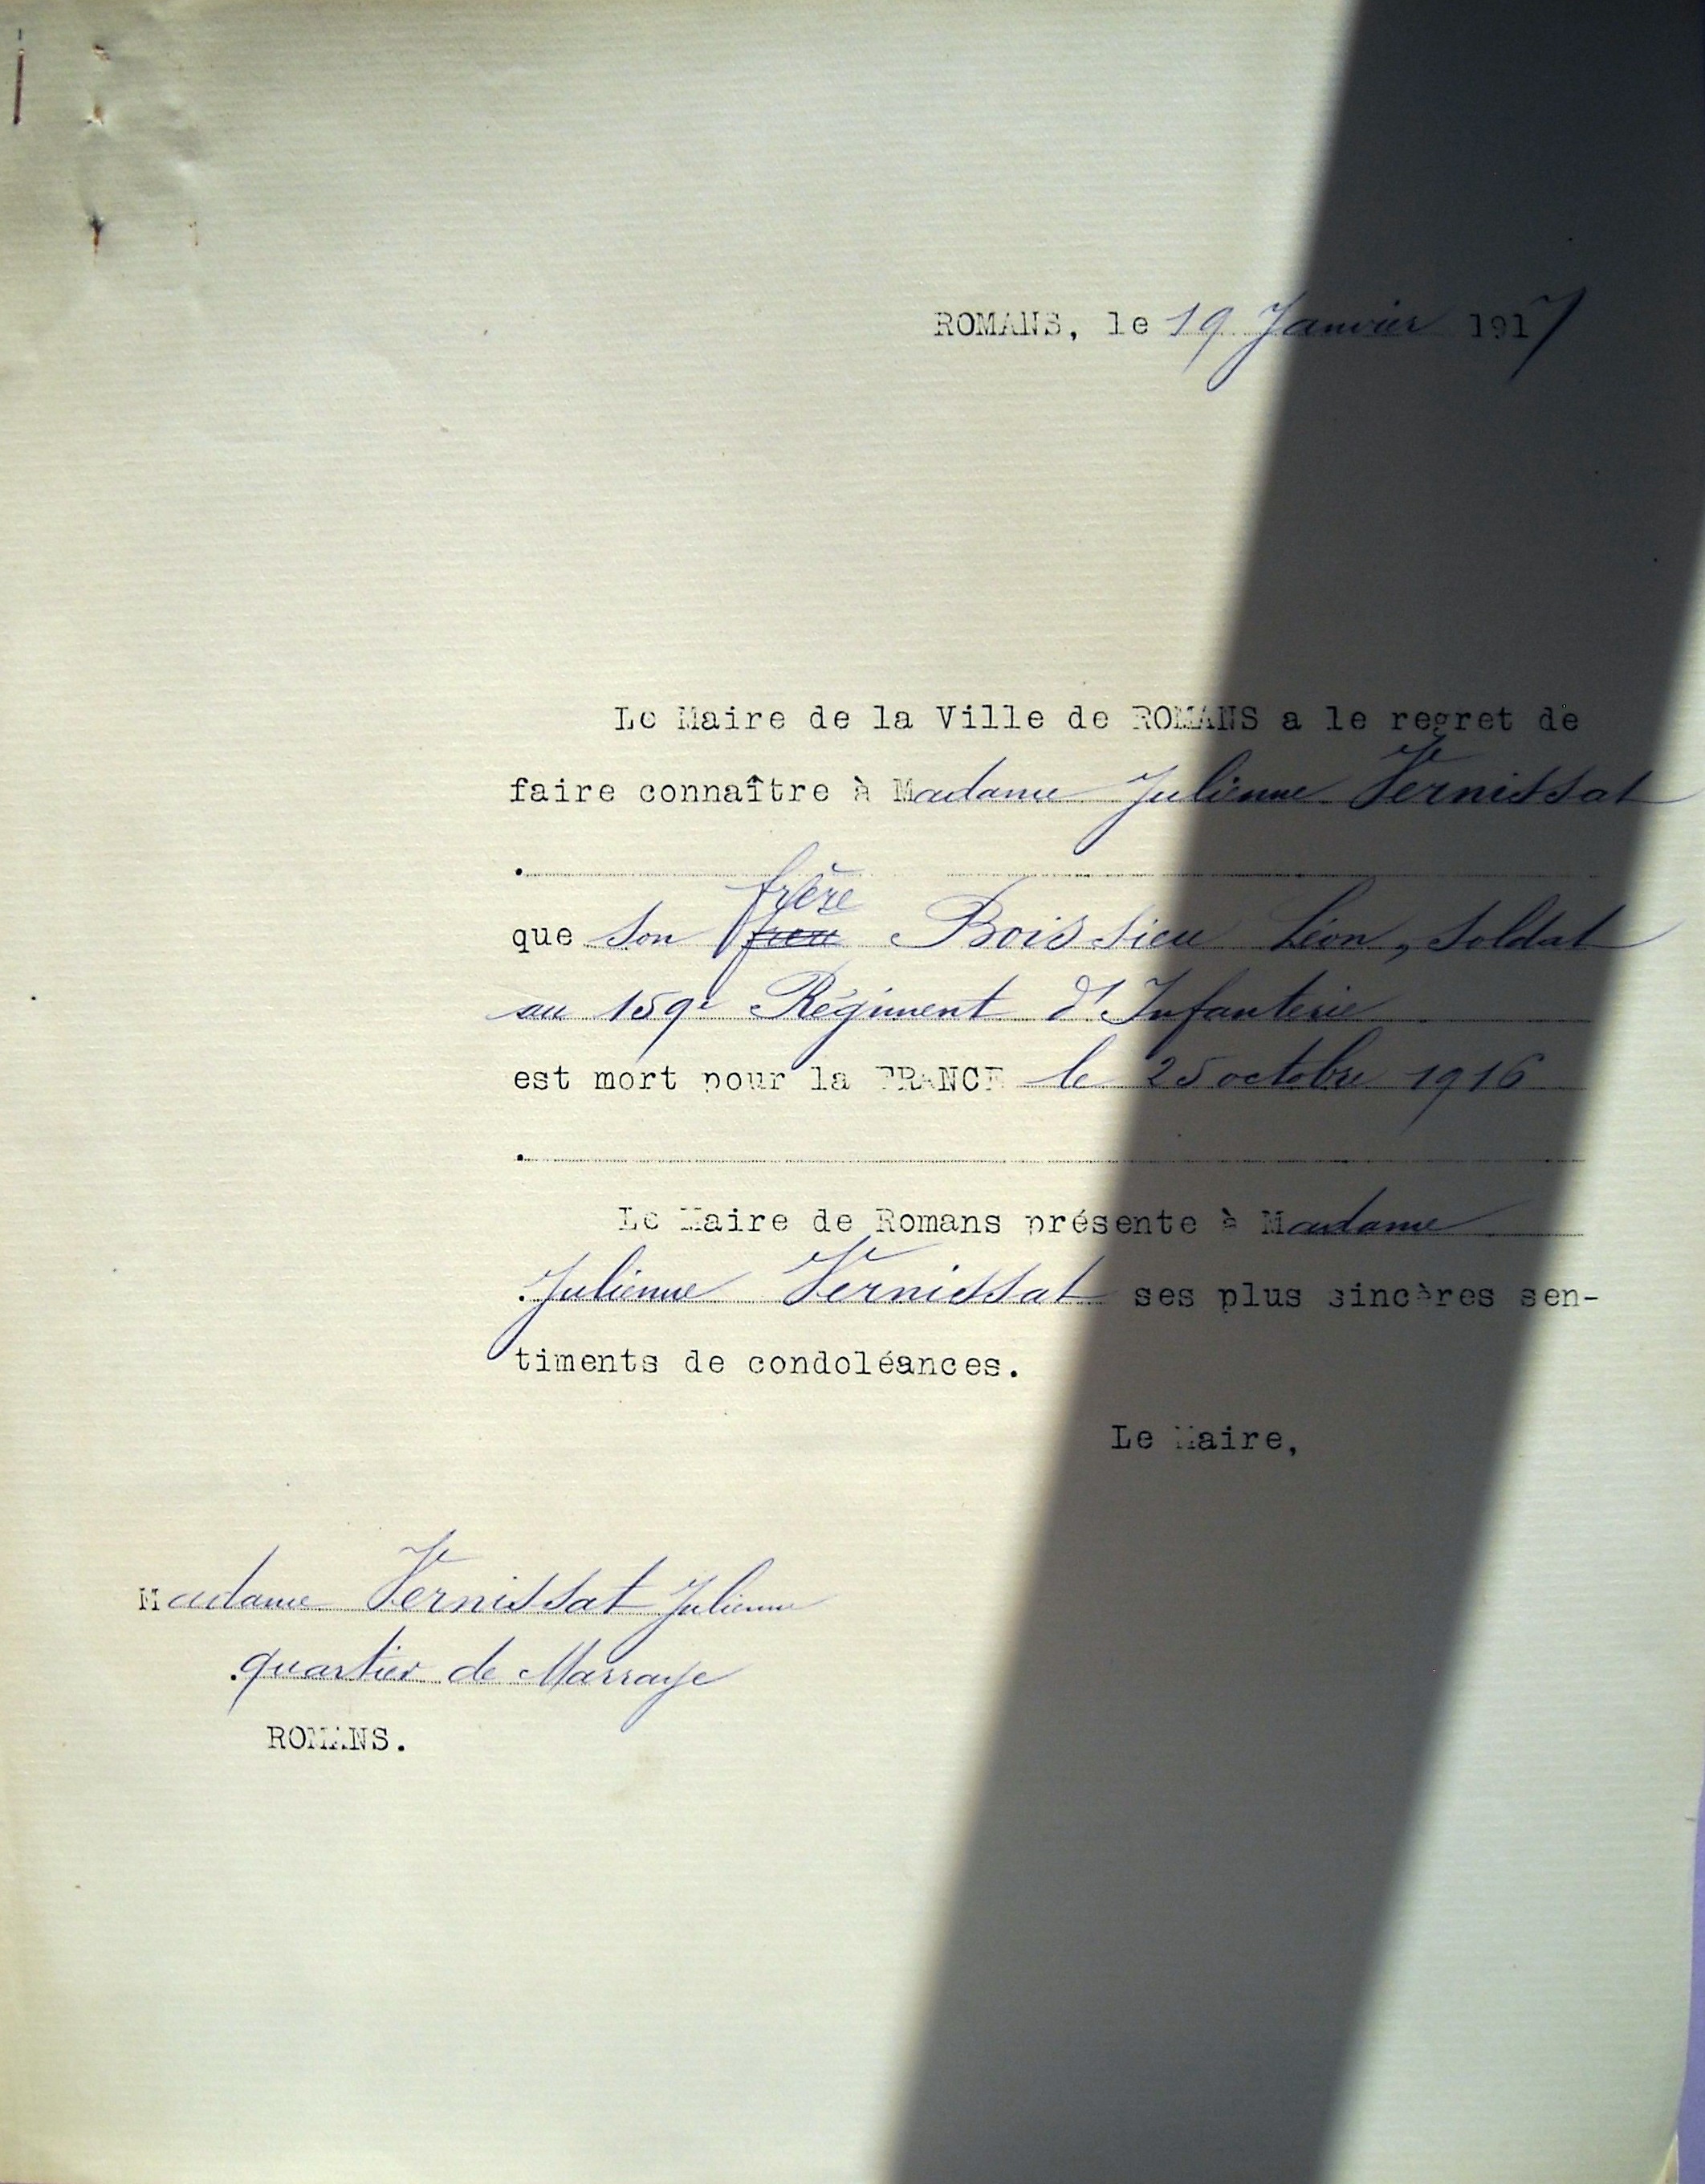 ROMANS, le 19 Janvier 1917
Le Maire de la Ville de ROMANS a le regret de
faire connaître à Madame Julienne Vernissat
.
frère
que son Boissieu Léon, soldat
au 159e Régiment d'Infanterie
est mort pour la FRANCE le 25 octobre 1916
.
Le Maire de Romans présente à Madame
.Julienne Vernissat ses plus sincères sen-
timents de condoléances.
Le Maire,
Madame Vernissat Julienne
.quartier de
ROMANS.